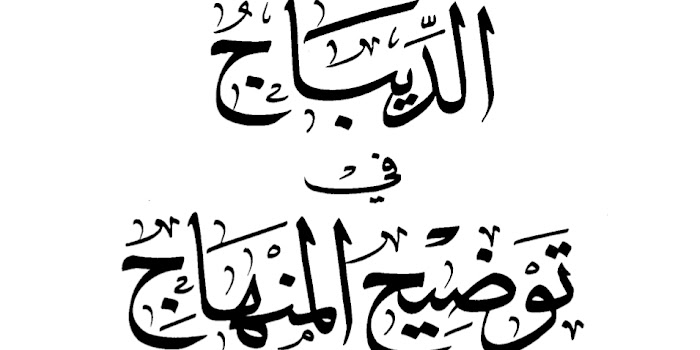 الدِّيبَاج
في
تَوْضِيح المِنْهَاج